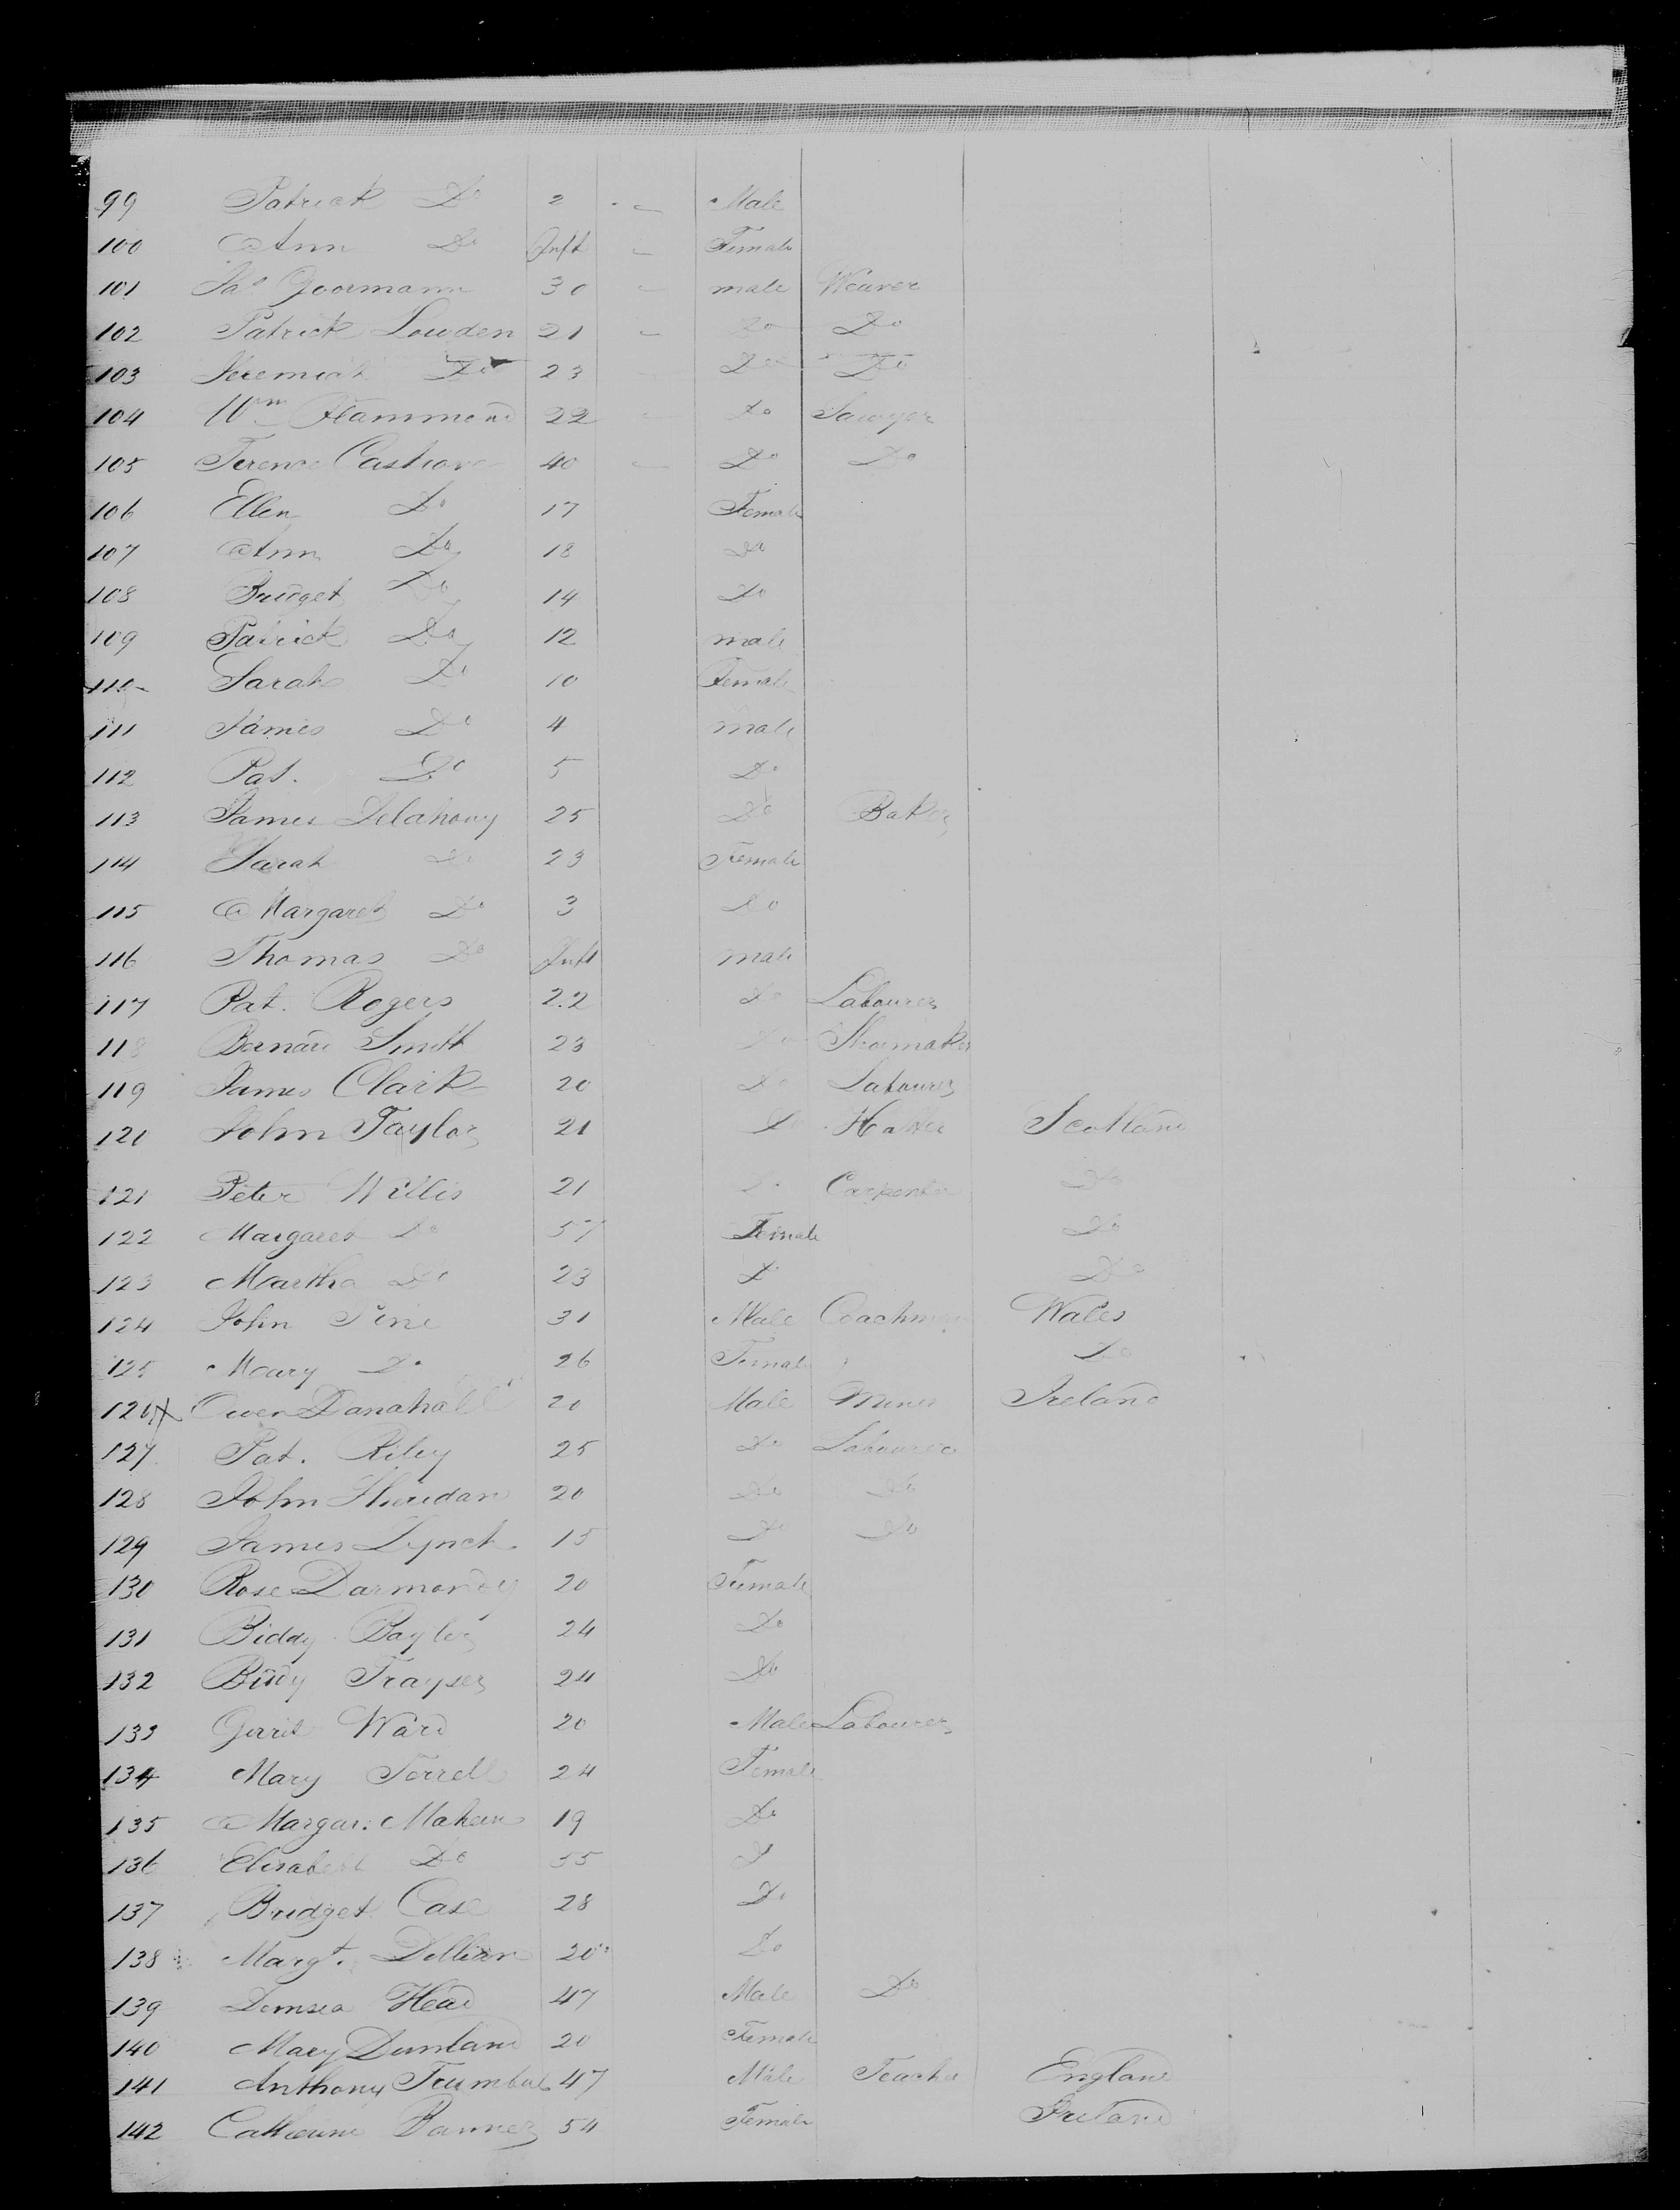 99 Patrick Do 2 - Male
100 Ann Do Inft - Female
101 Jas Goormann 30 - male Weaver
102 Patrick Lowden 21 - Do Do
103 Jeremiah Do 23 Do Do
104 Wm Hammond 22 - Do Sawyer
105 Terence 40 - Do Do
106 Ellen Do 17 Female
107 Ann Do 18 Do
108 Bridget Do 14 Do
109 Patrick Do 12 male
110 Sarah Do 10 Female
111 James Do 4 male
112 Pat. Do 5 Do
113 James Delahouy 25 Do Baker
114 Sarah Do 23 Female
115 Margaret Do 3 Do
116 Thomas Do Inft male
117 Pat. Rogers 22 Do Labourer
118 Bernard Smith 23 Do Shoemaker
119 James Clark 20 Do Labourer
120 John Taylor 21 Do Hatter Scotland
121 Peter Willis 21 Do Carpenter Do
122 Margaret Do 57 Female Do
123 Martha Do 23 Do Do
124 John Pine 31 Male Coachman Wales
125 Mary Do 26 Female Do
126 X Owen Danahall 20 Male Miner Ireland
127 Pat. Riley 25 Do Labourer
128 John Sheridan 20 Do Do
129 James Lynch 15 Do Do
130 Rose Darmondy 20 Female
131 Biddy Bayler 24 Do
132 Biddy Trayser 24 Do
133 Gerrit Ward 20 Male Labourer
134 Mary Torrell 24 Female
135 Margar: Mahan 19 Do
136 Elisabeth Do 55 Do
137 Bridget Case 28 Do
138 Margt. Dillian 20 Do
139 Head 47 Male Do
140 Mary Dunland 20 Female
141 Anthony Trumbul 47 Male Teacher England
142 Catherine 54 Female Ireland